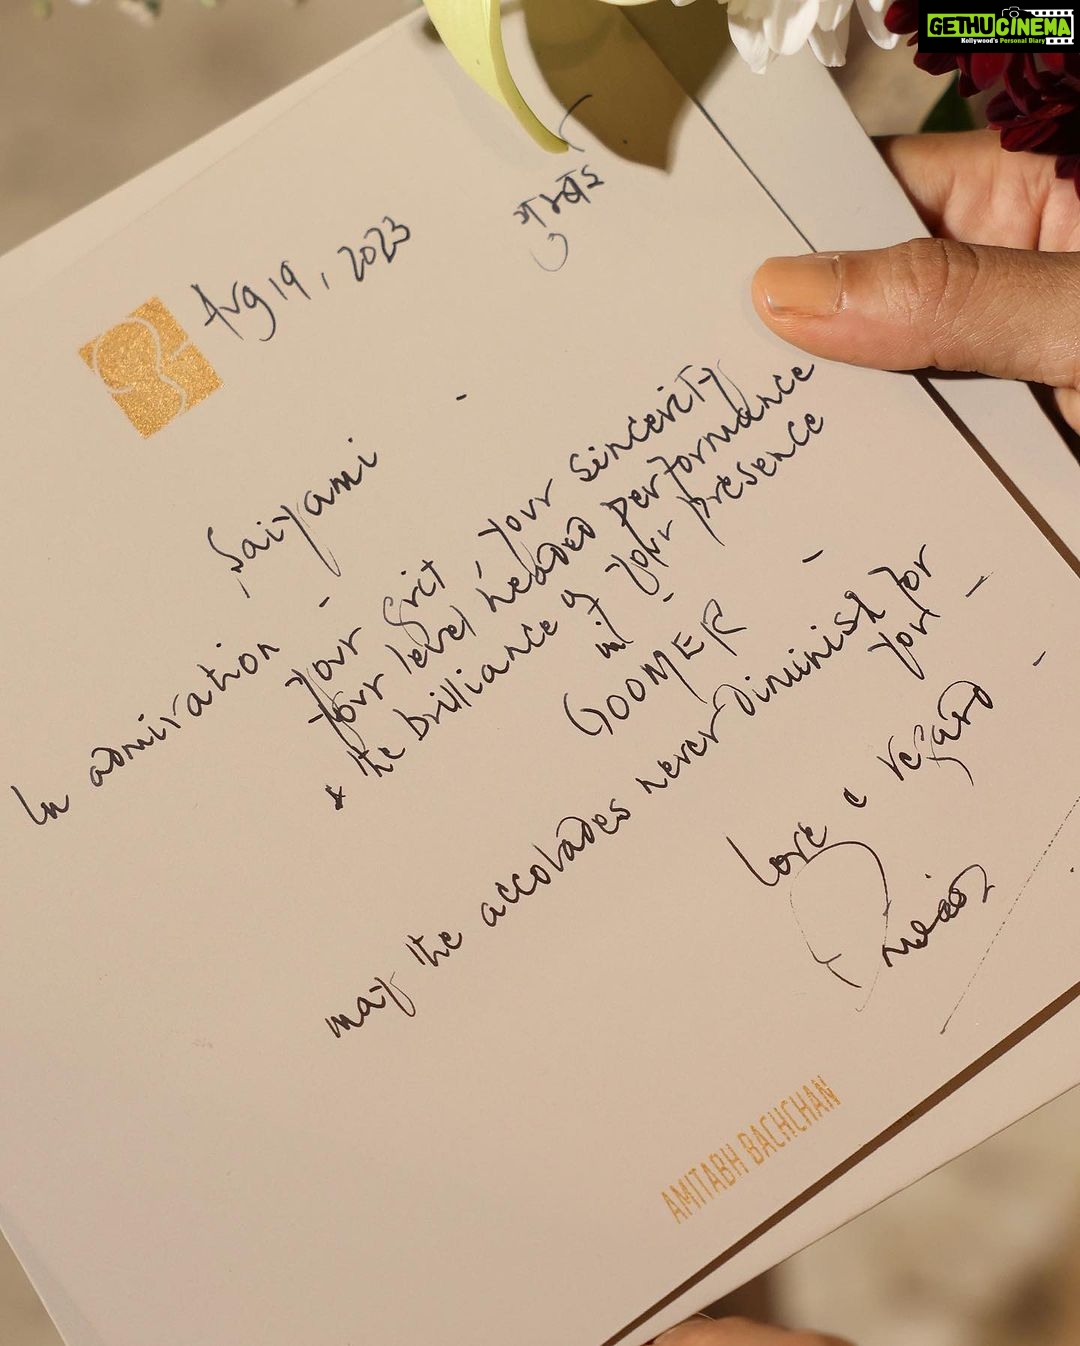 GETHUCINEMA
Kollywood's Personal Diary
Aug 19, 2023
Saiyami -
In admiration -
your grit, your sincerity
your level headed performance
& the brilliance of your presence
in it -
GOOMER -
may the accolades never diminish for
you -
love & regard -
AMITABH BACHCHAN